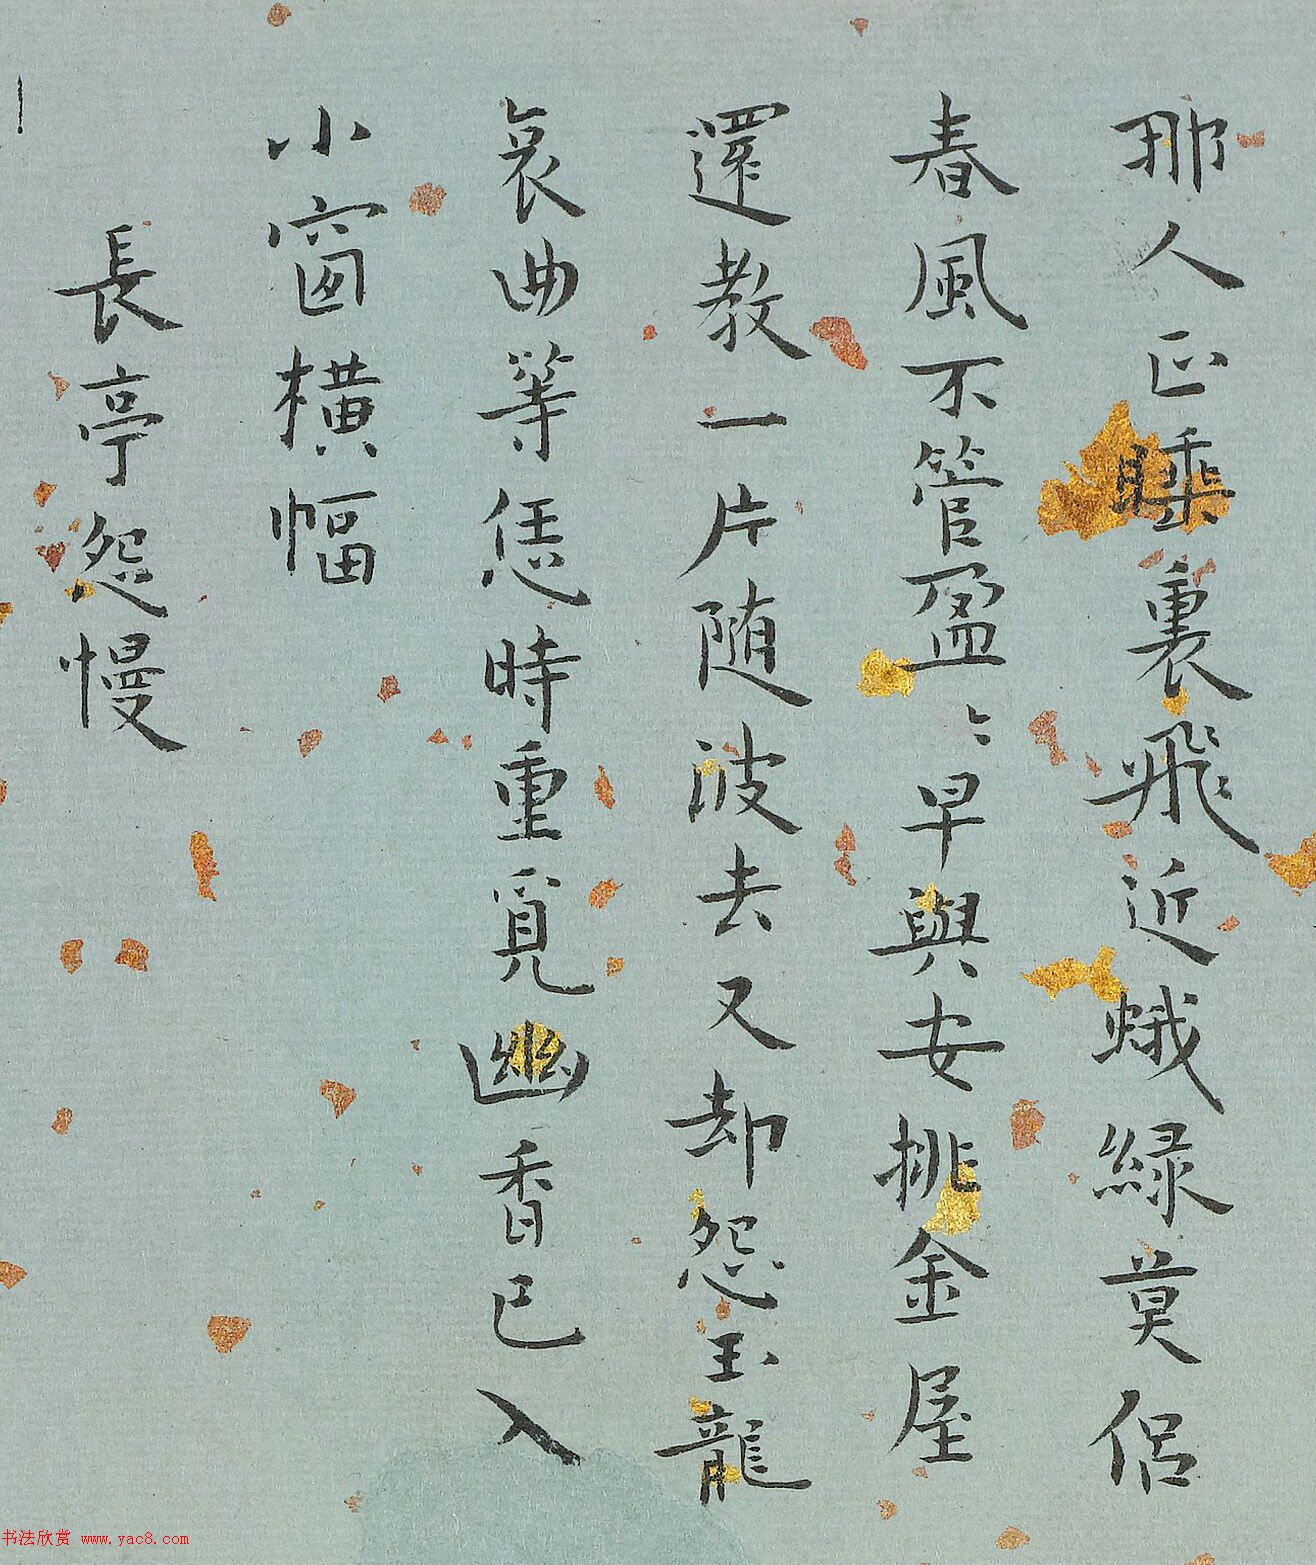 那人正睡裏飛近蛾綠莫侣
春風不管盈〻早與安排金屋
還教一片随波去又却怨玉龍
哀曲等恁時重覓幽香已入
小窗横幅
長亭怨慢
书法欣赏 www.yac8.com